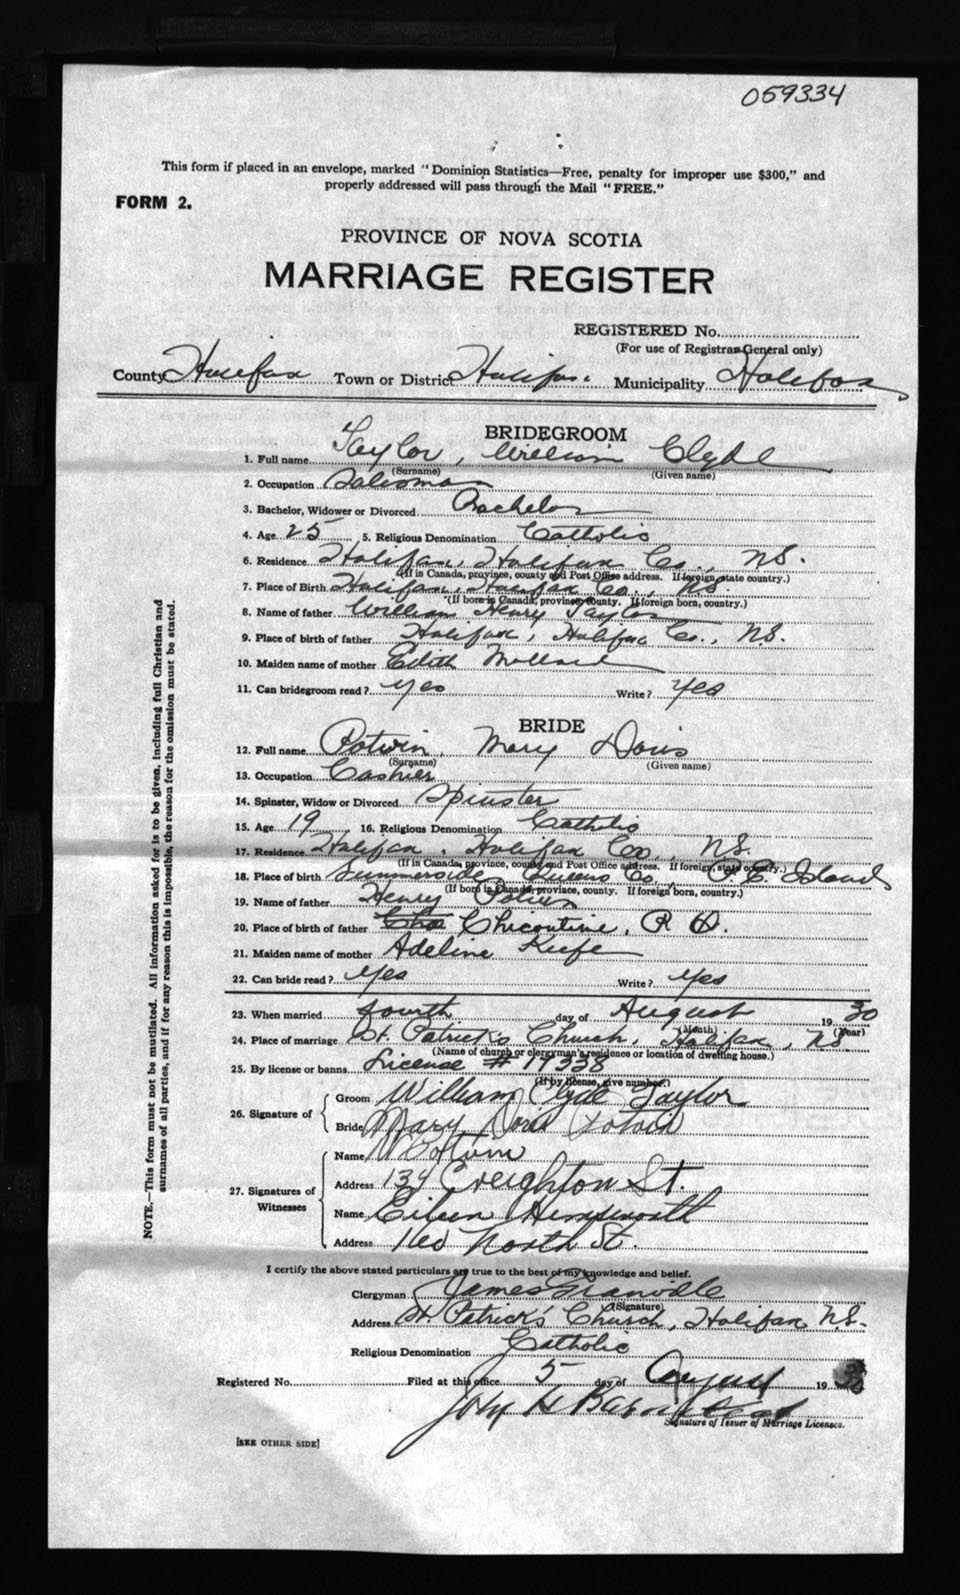 059334
This form if placed in an envelope, marked "Dominion Statistics—Free, penalty for improper use $300," and
properly addressed will pass through the Mail "FREE."
FORM 2.
PROVINCE OF NOVA SCOTIA
MARRIAGE REGISTER
REGISTERED No.
(For use of Registrar General only)
County Halifax Town or District Halifax. Municipality Halifax
BRIDEGROOM
1. Full name Taylor, William Clyde
(Surname) (Given name)
2. Occupation Salesman
3. Bachelor, Widower or Divorced Bachelor
4. Age 25 5. Religious Denomination Catholic
6. Residence Halifax, Halifax Co., N.S.
(If in Canada, province, county and Post Office address. If foreign, state country.)
7. Place of Birth Halifax, Halifax Co., N.S.
(If born in Canada, province, county. If foreign born, country.)
8. Name of father William Henry Taylor
9. Place of birth of father Halifax, Halifax Co., N.S.
10. Maiden name of mother Edith
11. Can bridegroom read? Yes Write? Yes
BRIDE
12. Full name Potvin, Mary Doris
(Surname) (Given name)
13. Occupation Cashier
14. Spinster, Widow or Divorced Spinster
15. Age 19 16. Religious Denomination Catholic
17. Residence Halifax, Halifax Co., N.S.
(If in Canada, province, county and Post Office address. If foreign, state country.)
18. Place of birth Summerside Queens Co, P.E. Island
(If born in Canada, province, county. If foreign born, country.)
19. Name of father Henry Potvin
20. Place of birth of father Chicoutine, P. Q.
21. Maiden name of mother Adeline Keefe
22. Can bride read? Yes Write? Yes
23. When married fourth day of August 1930
(Month) (Year)
24. Place of marriage St. Patrick's Church, Halifax, N.S.
(Name of church or clergyman's residence or location of dwelling house.)
25. By license or banns License # 17338
(If by license, give number.)
26. Signature of
Groom William Clyde Taylor
Bride Mary Doris Potvin
27. Signatures of
Witnesses
Name
Address 134 Creighton St.
Name Eileen Hemsworth
Address North St.
I certify the above stated particulars are true to the best of my knowledge and belief.
Clergyman James Granville
(Signature)
Address St. Patrick's Church, Halifax N.S.
Religious Denomination Catholic
Registered No. Filed at this office 5 day of August 1930
John H Barnstead
Signature of Issuer of Marriage Licenses.
[SEE OTHER SIDE]
NOTE.—This form must not be mutilated. All information asked for is to be given, including full Christian and
surnames of all parties, and if for any reason this is impossible, the reason for the omission must be stated.